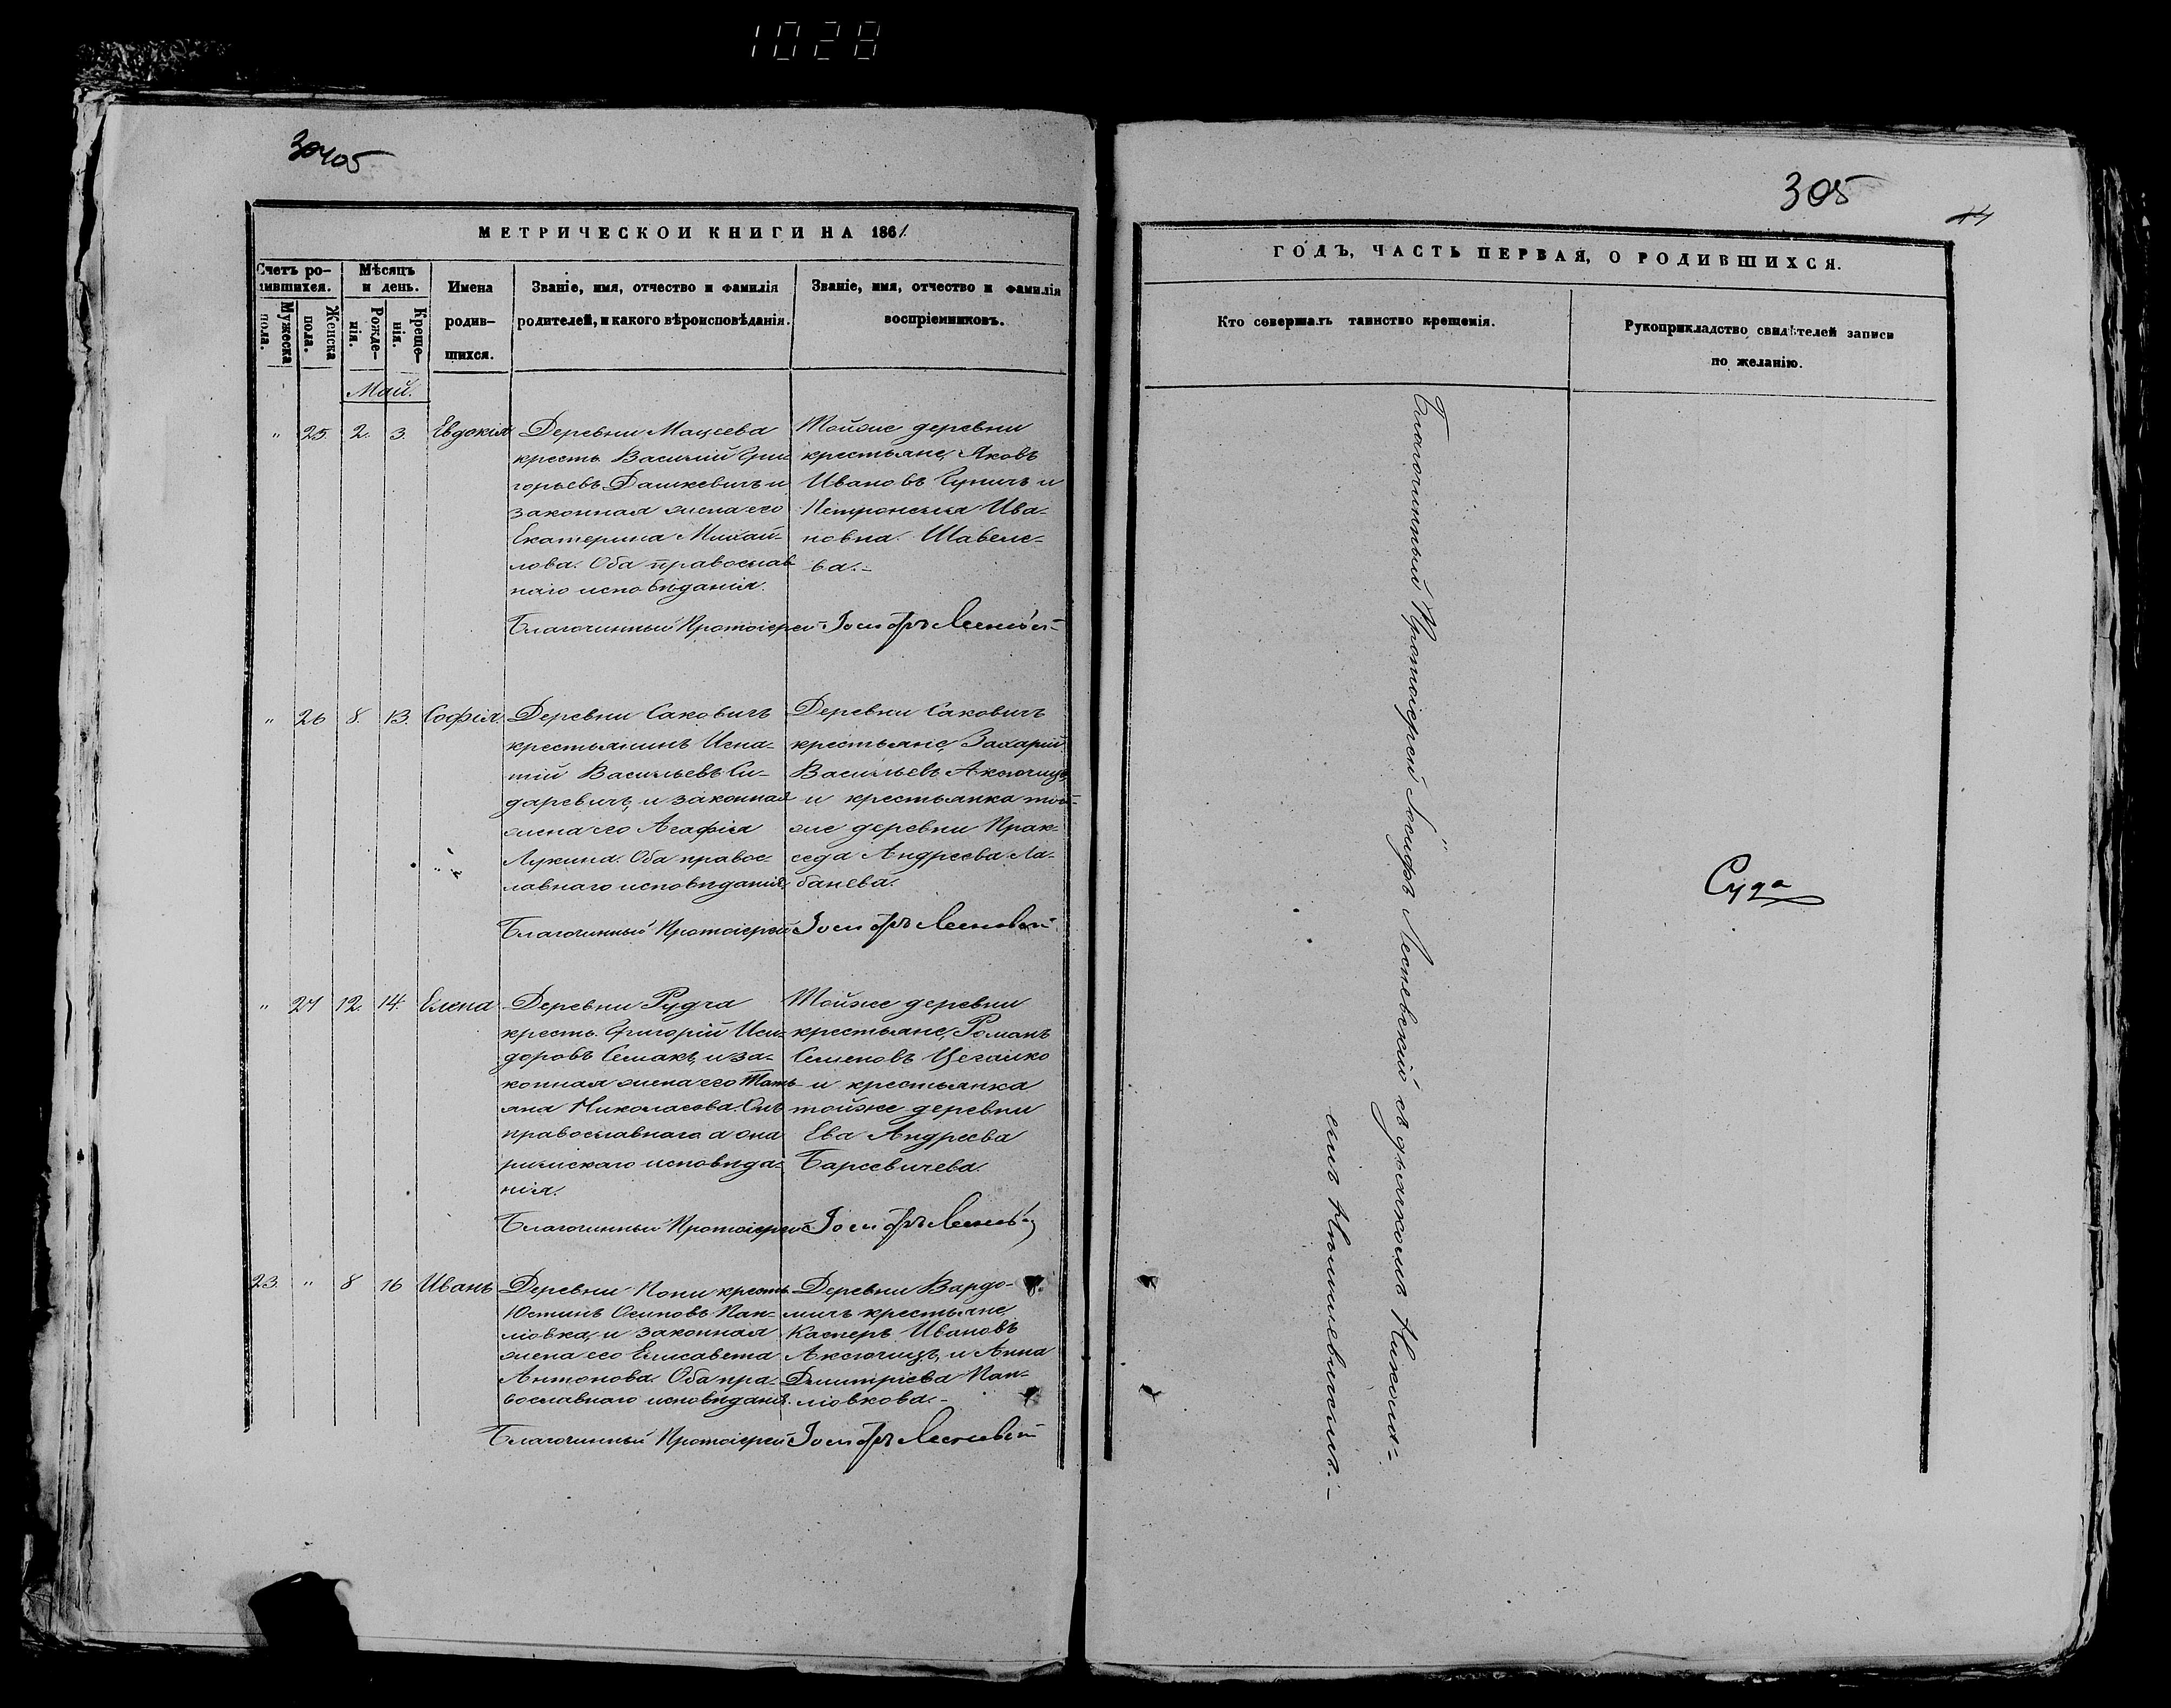 1028
305
305
44
МЕТРИЧЕСКОЙ КНИГИ НА 1861
Счетъ ро-
дившихся.
Мѣсяцъ
и день.
Имена
родив-
шихся.
Званіе, имя, отчество и фамилія
родителей, и какого вѣроисповѣданія.
Званіе, имя, отчество и фамилія
воспріемниковъ.
Мужеска
пола.
Женска
пола.
Рожде-
нія.
Креще-
нія.
Май.
" 25. 2. 3. Евдокія
Деревни Мацеева
кресть. Василій Гри-
горьевъ Дашкевичъ и
законная жена его
Екатерина Михай-
лова. Оба православ
наго исповѣданія.
Тойже деревни
крестьяне, Яковъ
Ивановъ Гупичъ и
Петронелла Ива-
новна Шавеле-
ва.-
Благочинный Протоіерей Іосифъ
" 26 8. 13. Софія.
Деревни Саковичъ
крестьянинъ Игна-
тій Васильевъ Си-
даревичъ, и законная
жена его Агафія
Лукина. Оба правос-
лавнаго исповѣданія.
Деревни Саковичъ
крестьяне, Захарій
Васильевъ Аксючицъ
и крестьянка той-
же деревни Прак-
седа Андреева Ла-
банева.
Благочинный Протоіерей Іосифъ
" 27 12. 14. Елена
Деревни Рудча
кресть. Григорій Иси-
доровъ Семакъ, и за-
конная жена его Тать-
яна Николаева. Онъ
православнаго а она
римскаго исповѣда-
нія.
Тойже деревни
крестьяне, Романъ
Семеновъ Цегалко
и крестьянка
тойже деревни
Ева Андреева
Барсевичева.
Благочинный Протоіерей Іосифъ
23. " 8 16 Иванъ
Деревни Попи кресть.
Юстинъ Осиповъ Пап-
ловка, и законная
жена его Елисавета
Антонова. Оба пра-
вославнаго исповѣданія.
Деревни Вардо-
мичъ крестьяне,
Касперъ Ивановъ
Аксючицъ, и Анна
Дмитріева Пап-
ловкова.-
Благочинный Протоіерей Іосифъ
ГОДЪ, ЧАСТЬ ПЕРВАЯ, О РОДИВШИХСЯ.
Кто совершалъ таинство крещенія.
Рукоприкладство свидѣтелей записи
по желанію.
Благочинный Протоіерей Іосифъ съ дьячкомъ Никола-
емъ
Суда